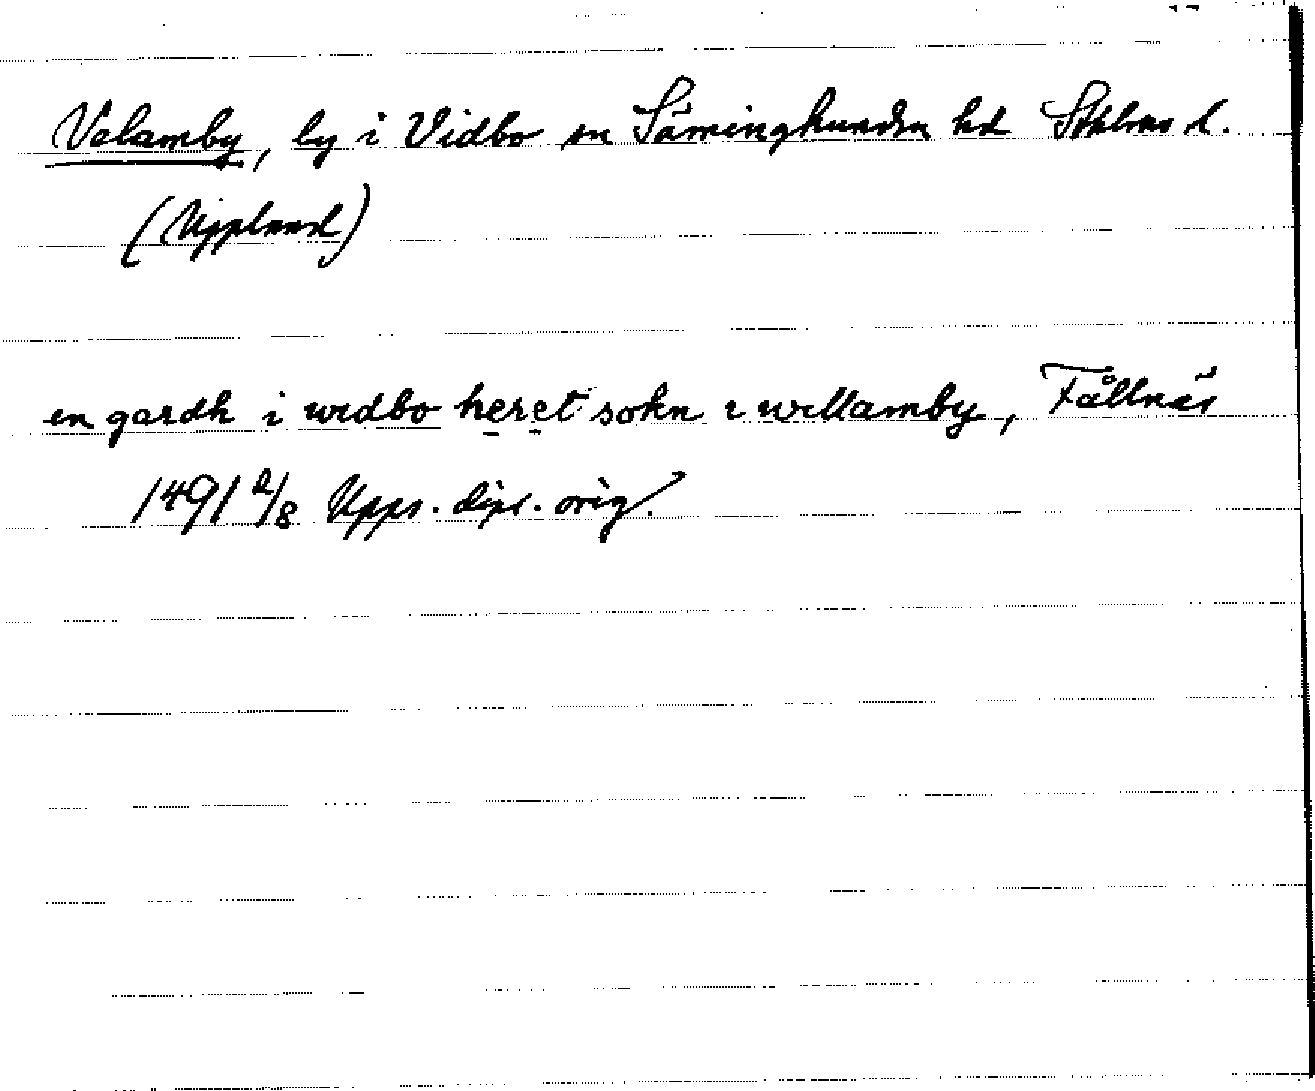 Velamby, by i Vidbo sn Säminghundra hd Sthlms l.
(Uppland)
en gardh i widbo heret sokn i wellamby, Fållnäs
1491 2/8 Upps. dipl. orig.